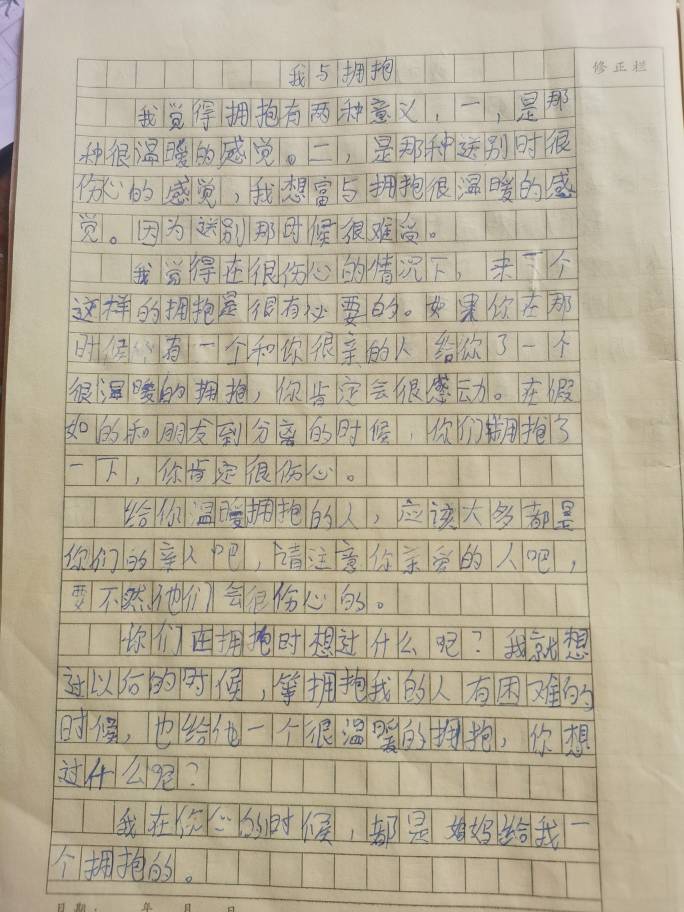 我与拥抱
修正栏
我觉得拥抱有两种意义，一，是那
种很温暖的感觉。二，是那种送别时很
伤心的感觉，我想富与拥抱很温暖的感
觉。因为送别那时候很难受。
我觉得在很伤心的情况下，来一个
这样的拥抱是很有必要的。如果你在那
时候有一个和你很亲的人给你了一个
很温暖的拥抱，你肯定会很感动。在假
如的和朋友到分离的时候，你们拥抱了
一下，你肯定很伤心。
给你温暖拥抱的人，应该大多都是
你们的亲人吧，请注意你亲爱的人吧，
要不然他们会很伤心的。
你们在拥抱时想过什么呢？我就想
过以后的时候，等拥抱我的人有困难的
时候，也给他一个很温暖的拥抱，你想
过什么呢？
我在伤心的时候，都是妈妈给我一
个拥抱的。
日期： 年 月 日